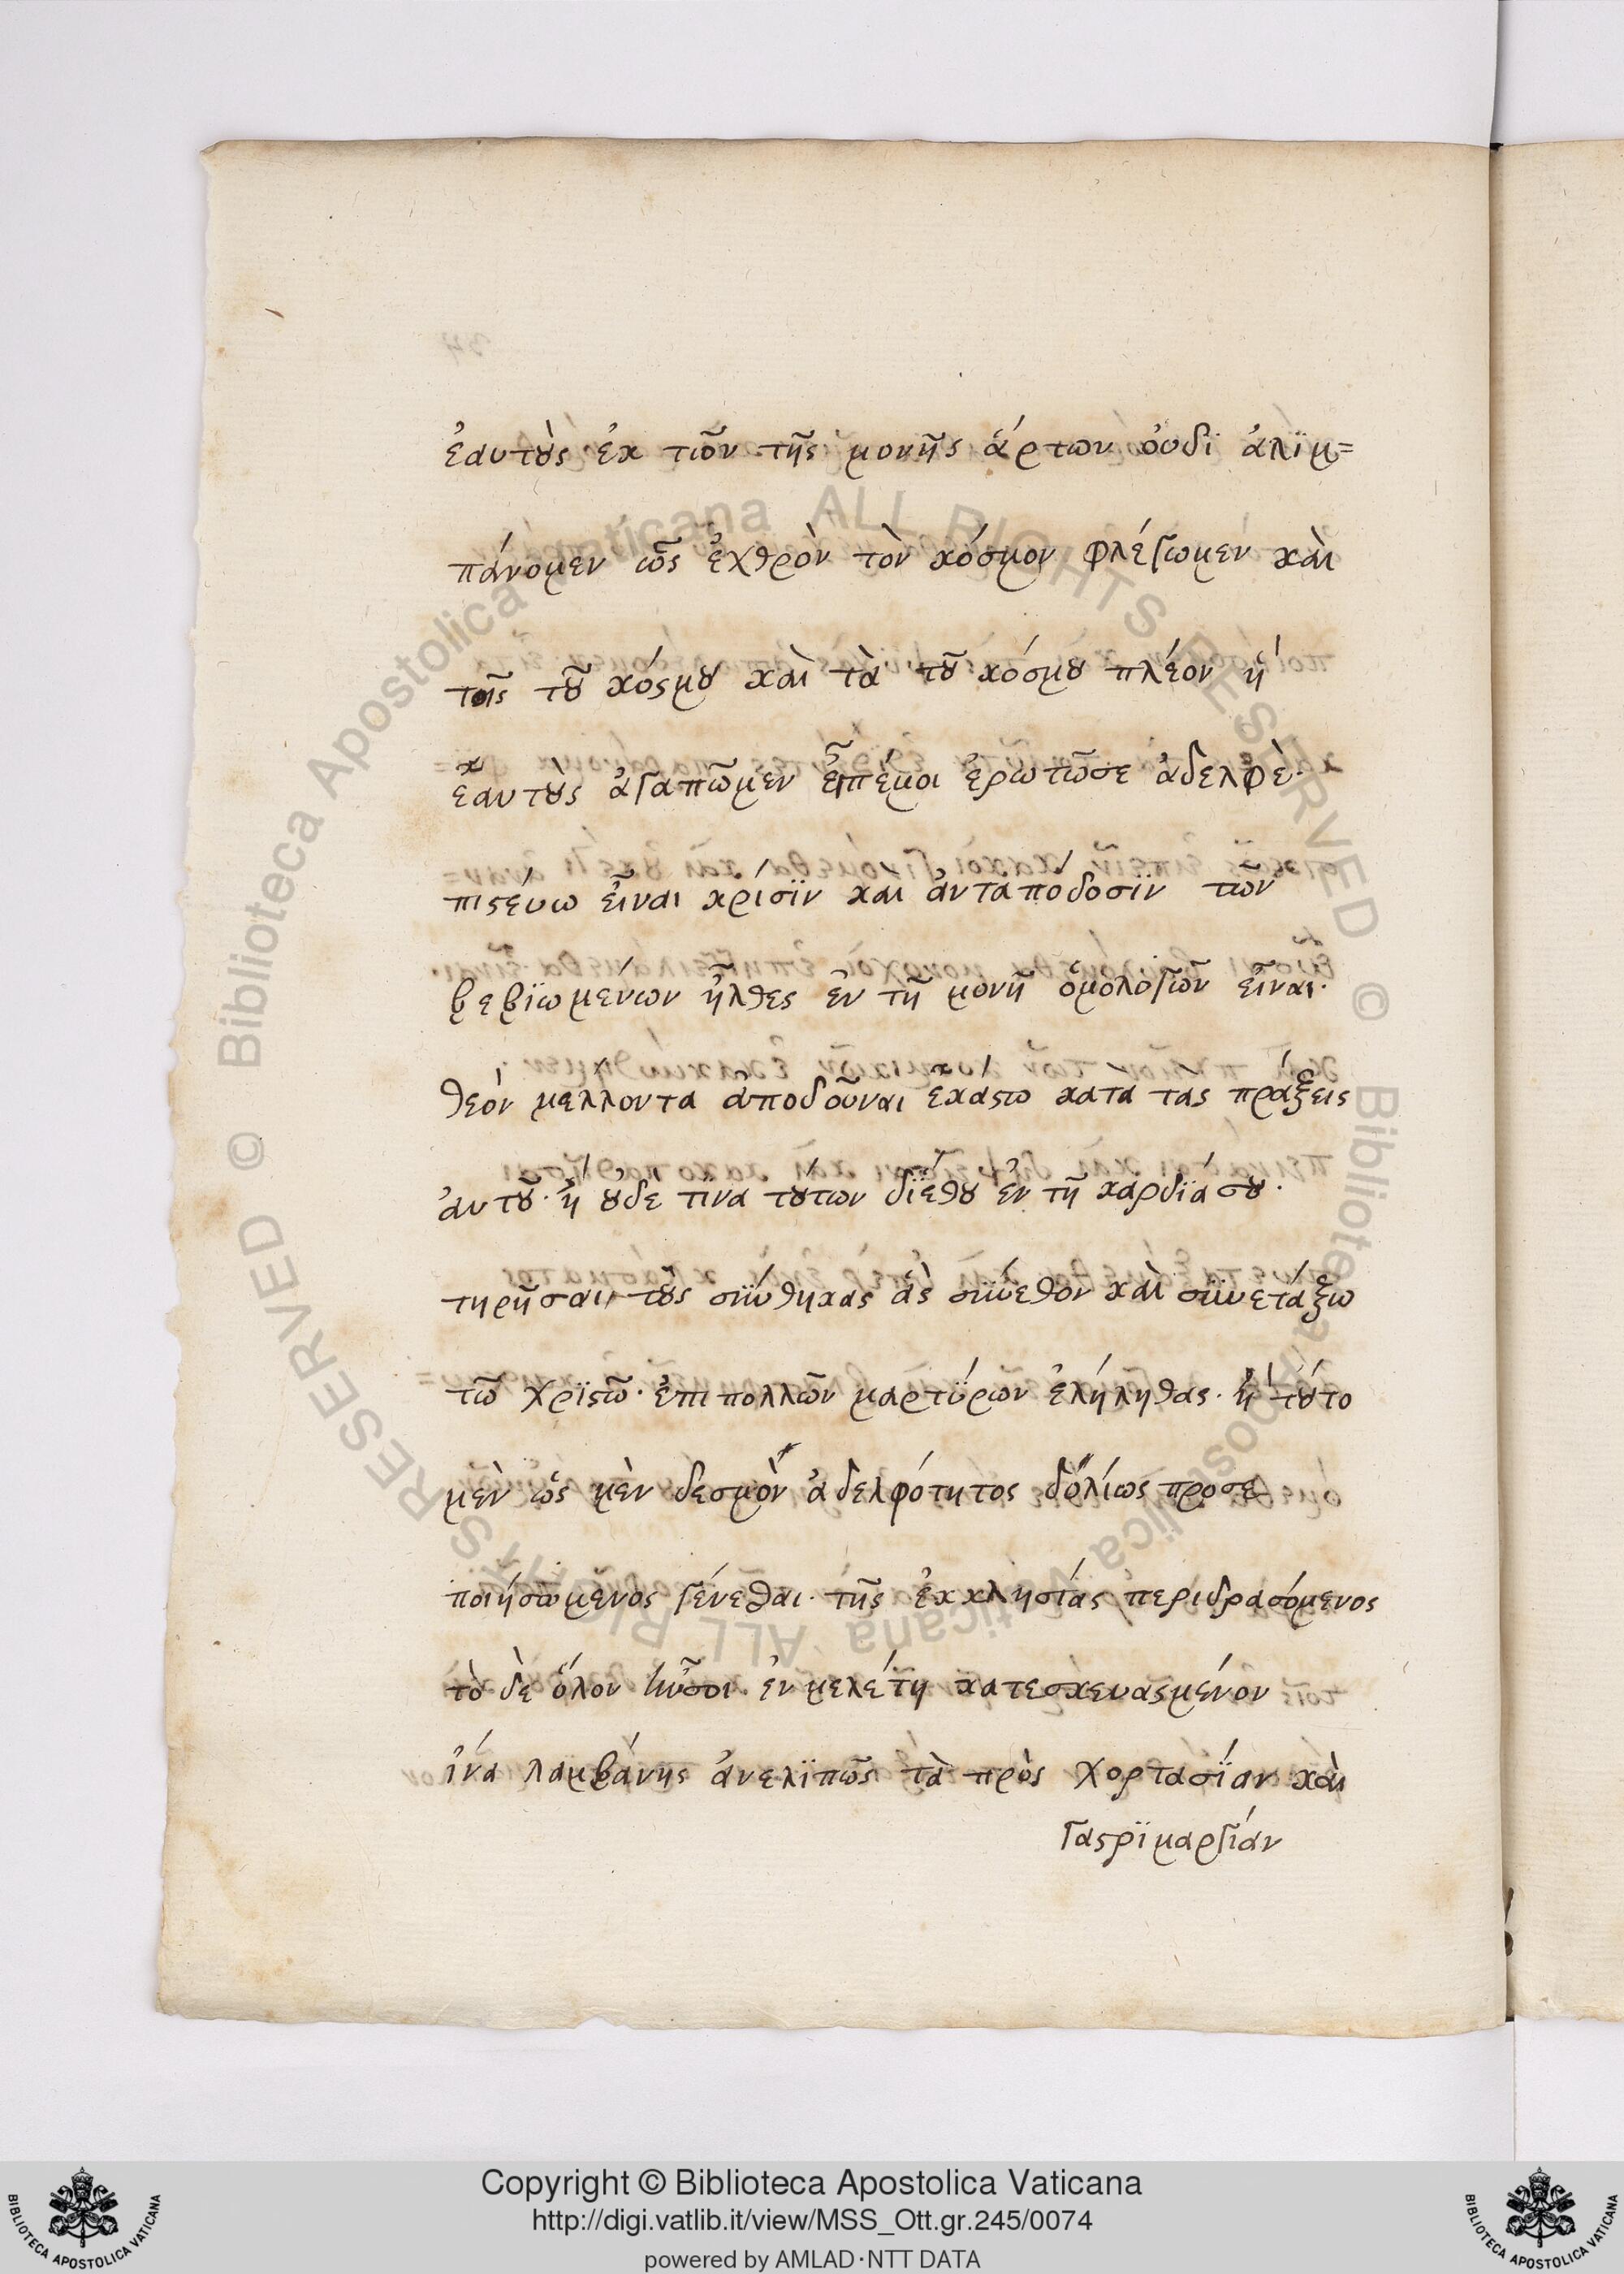 ἑαυτοὺς ἐκ τῶν τῆς μονῆς ἄρτων οὐδὶ ἀλϊμ=
πάνομεν ὡς ἐχθρὸν τὸν κόσμον φλέγωμεν καὶ
τοῖς τοῦ κόσμου καὶ τὰ τοῦ κόσμου πλέον ἢ
ἑαυτοὺς ἀγαπῶμεν εἶπέμοι ἐρωτῶσε ἀδελφὲ·
πιστεύω εἶναι κρίσϊν καὶ ἀνταπόδοσϊν τῶν
βεβϊωμένων ἦλθες ἐν τῆ μονῆ ὁμολογῶν εἶναι·
θεὸν μέλλοντα ἀποδοῦναι ἑκάστω κατὰ τὰς πράξεις
ἀυτοῦ· ἢ οὐδέ τϊνα τούτων δϊέθου ἐν τῆ καρδϊά σου·
τηρῆσαι τοὺς συνθήκας ἃς συνέθου καὶ συνετάξω
τῶ χρϊστῶ· ἐπι πολλῶν μαρτϋρων ἐλήληθας· ἢ τοῦτο
μὲν ὡς μὲν δεσμὸν ἀδελφότητος δολίως προσε
ποιήσωμενος γένεσθαι· τῆς ἐκκλησίας περιδρασόμενος
τὸ δὲ ὅλον ἐν μελέτη κατεσκευασμένον
ἵνα λαμβάνης ἀνελϊπῶς τὰ πρὸς χορτασϊαν καὶ
γαστρϊμαργίαν
Copyright © Biblioteca Apostolica Vaticana
http://digi.vatlib.it/view/MSS_Ott.gr.245/0074
powered by AMLAD·NTT DATA